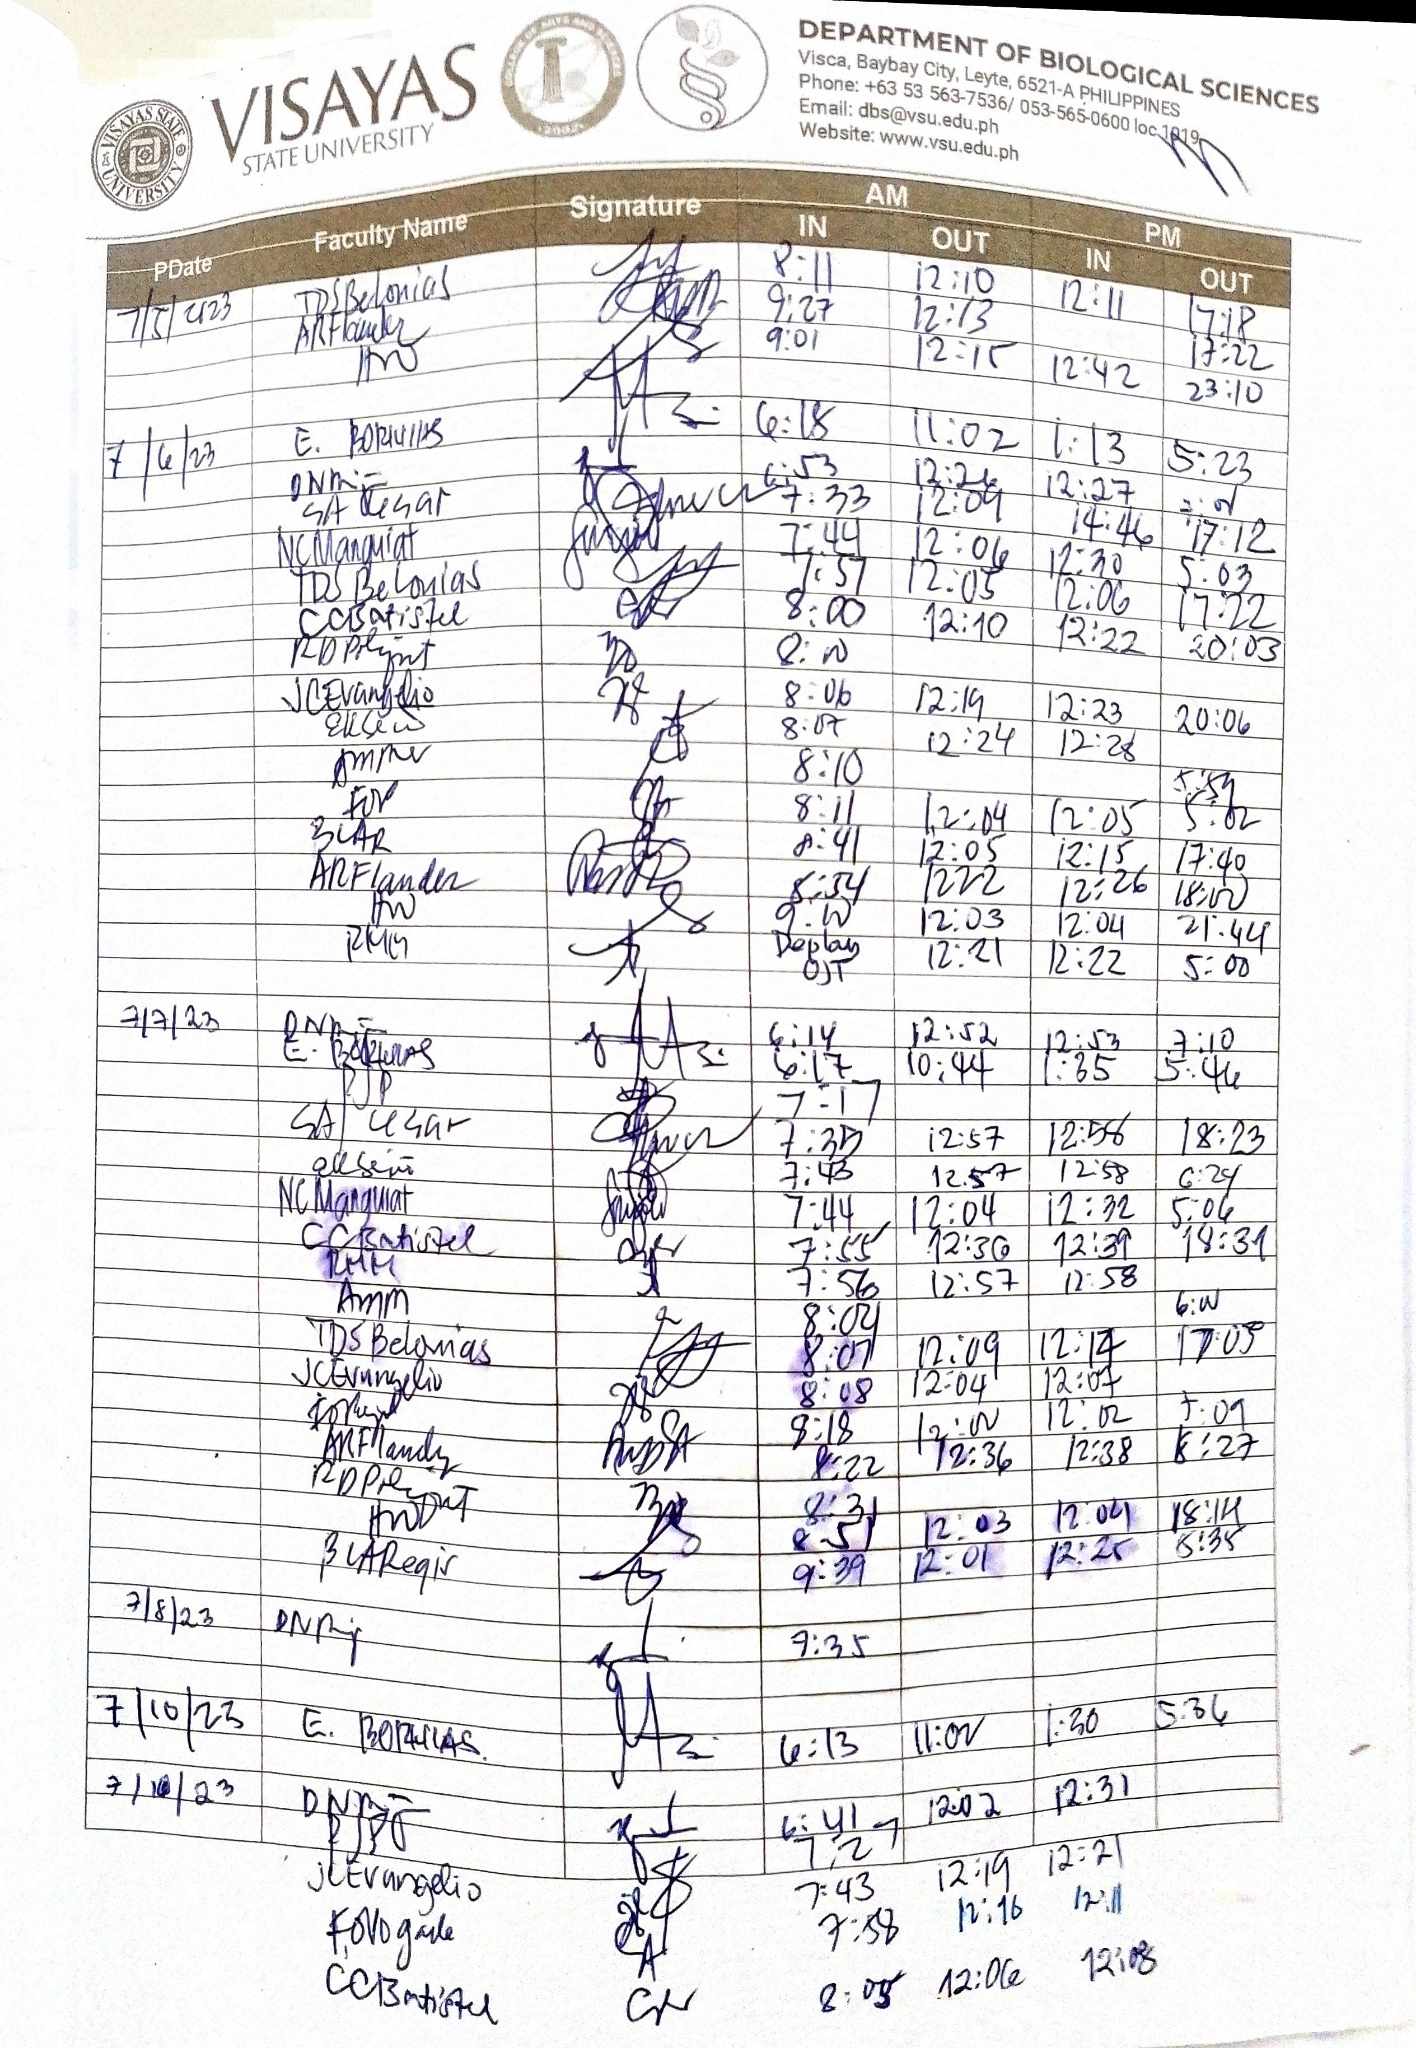 DEPARTMENT OF BIOLOGICAL SCIENCES
Visca, Baybay City, Leyte, 6521-A PHILIPPINES
Phone: +63 53 563-7536/ 053-565-0600 loc 1019
Email: dbs@vsu.edu.ph
Website: www.vsu.edu.ph
VISAYAS STATE UNIVERSITY
VISAYAS
STATE UNIVERSITY
AM PM
PDate Faculty Name Signature IN OUT IN OUT
7/5/2023 TDSBelonias 8:11 12:10 12:11 17:18
ARFlander 9:27 12:13 17:22
HW 9:01 12:15 12:42 23:10
7/6/23 E. BORINAS 6:18 11:02 1:13 5:23
6:53 12:26 12:27
SA Cesar 7:33 12:09 14:46 17:12
NCManguiat 7:44 12:06 12:30 5:03
TDS Belonias 7:57 12:05 12:06 17:22
CCBatistel 8:00 12:10 12:22 20:03
8:00
JCEvangelio 8:06 12:19 12:23 20:06
8:07 12:24 12:28
8:10 5:59
FOV 8:11 12:04 12:05 5:02
BLAR 8:41 12:05 12:15 17:40
ARFlander 8:54 1222 12:26 18:00
HW 9:10 12:03 12:04 21:44
RMM Deploy OJT 12:21 12:22 5:00
7/7/23 6:14 12:52 12:53 7:10
E. BORINAS 6:17 10:44 1:35 5:46
PJP 7:17
SA Cesar 7:35 12:57 12:58 18:23
7:43 12:57 12:58 6:24
NCManguiat 7:44 12:04 12:32 5:06
CCBatistel 7:55 12:36 12:39 18:31
RMM 7:56 12:57 12:58
AMM 8:04 6:00
TDSBelonias 8:07 12:09 12:14 17:05
JCEvangelio 8:08 12:04 12:07
8:18 12:00 12:02 5:09
ARFlander 8:22 12:36 12:38 8:27
8:31
HW 8:51 12:03 12:04 18:14
BLARegis 9:39 12:01 12:25 5:35
7/8/23 7:35
7/10/23 E. BORINAS. 6:13 11:02 1:30 5:36
7/10/23 6:41 12:02 12:31
7:27
JCEvangelio 7:43 12:19 12:21
7:58 12:16 12:11
CCBatistel 8:05 12:06 12:08